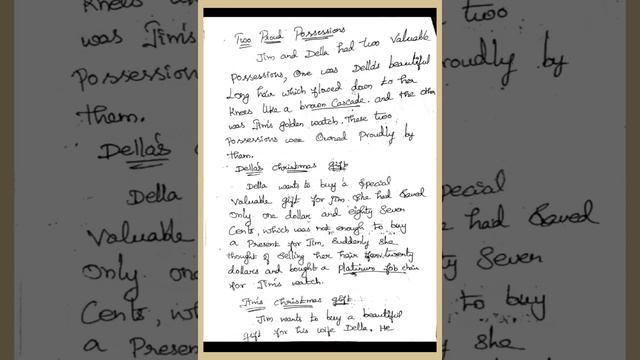 Two Proud Possessions
Jim and Della had two valuable
Possessions, One was Della's beautiful
Long hair which flowed down to her
Knees like a brown Cascade. and the other
was Jim's golden watch. These two
Possessions were Owned Proudly by
them.
Della's christmas gift
Della wants to buy a Special
Valuable gift for Jim. She had Saved
Only one dollar and eighty Seven
Cents, which was not enough to buy
a Present for Jim, Suddenly She
thought of Selling her hair for twenty
dollars and bought a Platinum fob chain
for Jim's watch.
Jim's christmas gift
Jim wants to buy a beautiful
gift for his wife Della. He